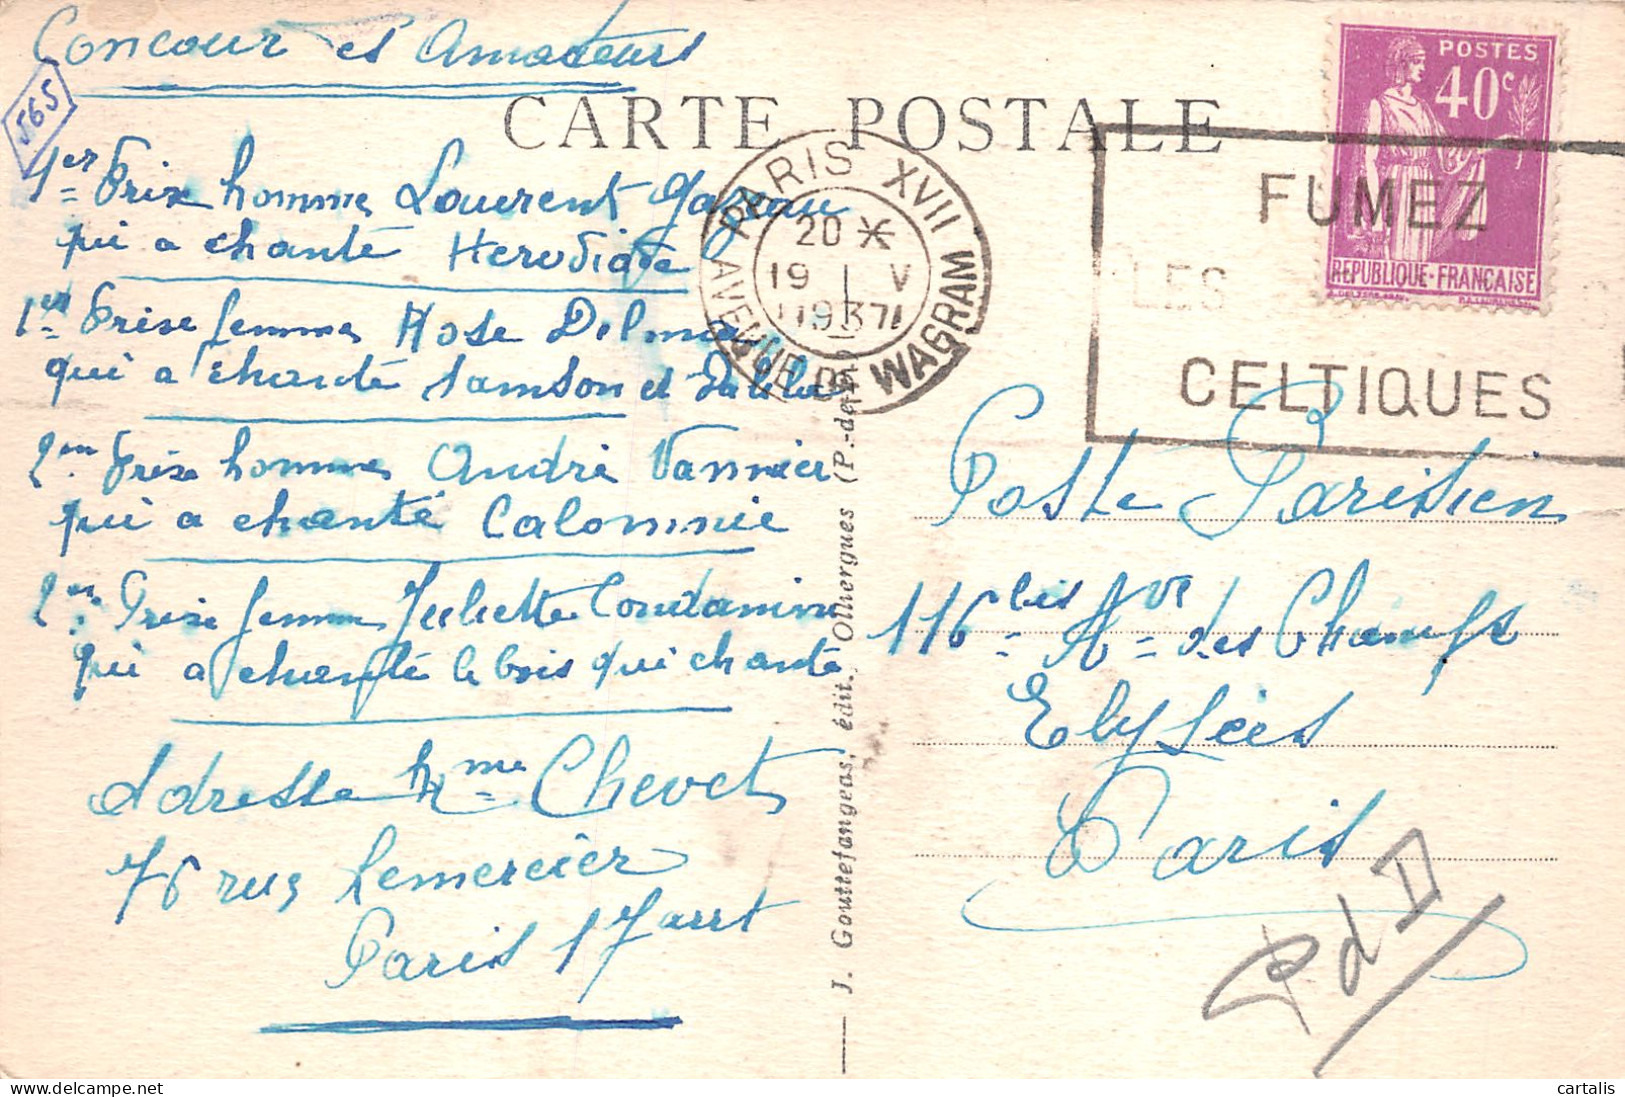 Concour es Amateurs
565
CARTE POSTALE
1er Prix homme Laurent
qui a chanté Herodiade
1er Prise femme Rose Delmas
qui a chanté Samson et Dalila
2em Prise homme André Vannier
qui a chanté Calomnie
2em Prise femme Juliette Condamine
qui a chanté le bois qui chante
Adresse Mme Chevet
76 rue Lemercier
Paris 17 arrt
J. Gouttefangeas, édit., Ollliergues (P.-de-D.)
PARIS XVII AVENUE DE WAGRAM
20 *
19 V
1937
POSTES
40c
REPUBLIQUE-FRANÇAISE
FUMEZ
LES
CELTIQUES
Poste Parisien
116 bis Ave des Champs
Elysées
Paris
P d D
cartalis